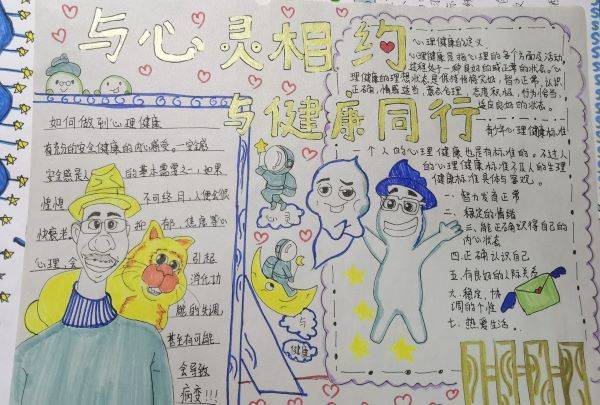 与心灵相约
与健康同行
如何做到心理健康
有充分的安全健康的内心感受。一安全感
安全感是人 的基本需要之一,如果
惶惶 不可终日,人便会很
快衰老。 抑 郁、焦虑等心
心理,会 引起
消化功
能的失调,
甚至有可能
会导致
病变!!!
心灵
与
健康
心理健康的定义
心理健康是指心理的各个方面及活动
过程处于一种良好的或正常的状态。心
理健康的理想状态是保持性格完好,智力正常,认识
正确,情感适当,意志合理,态度积极,行为恰当,
适应良好的状态。
青少年心理健康标准
个人的心理健康也是有标准的。不过人
的心理健康标准不及人的生理
健康标准具体与客观。
一.智力发育正常
二.稳定的情绪
三.能正确认得自己的
内心状态
四.正确认识自己
五.有良好的人际关系
六.稳定,协
调的个性
七.热爱生活.